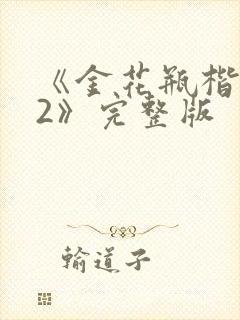 《金花瓶楷
2》完整版
输道子